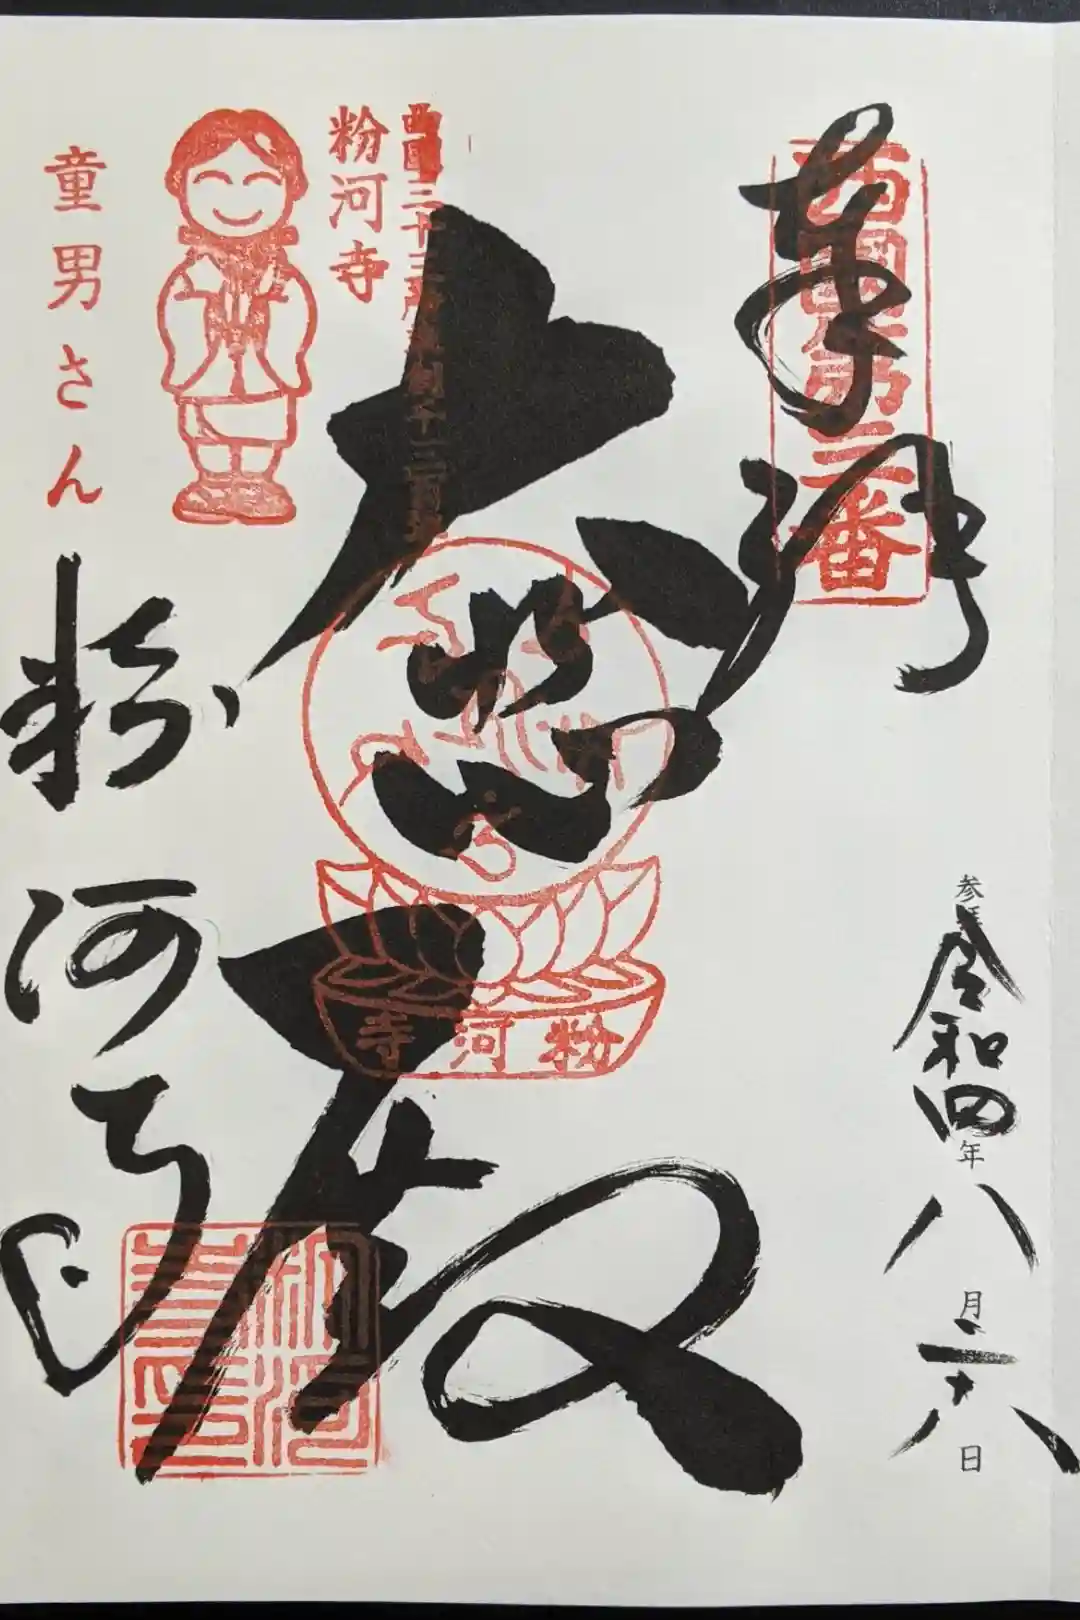 西国第三番
奉拝
参拝
令和四年八月
日
西国三十三所草創千三百年
大悲殿
粉河寺
粉河寺
童男さん
粉河寺
粉河寺印